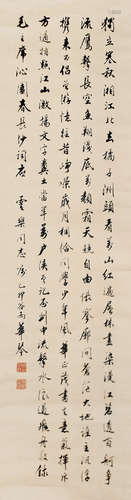 獨立寒秋湘江北去橘子洲頭看萬山紅遍層林盡染漫江碧透百舸爭
流鷹擊長空魚翔淺底萬類霜天競自由悵寥廓問蒼茫大地誰主沉浮
攜來百侶曾遊憶往昔崢嶸歲月稠恰同學少年風華正茂書生意氣揮斥
方遒指點江山激揚文字糞土當年萬戶侯曾記否到中流擊水浪遏飛舟敬錄
毛主席沁園春長沙詞應 雲樂同志屬 乙卯谷雨華